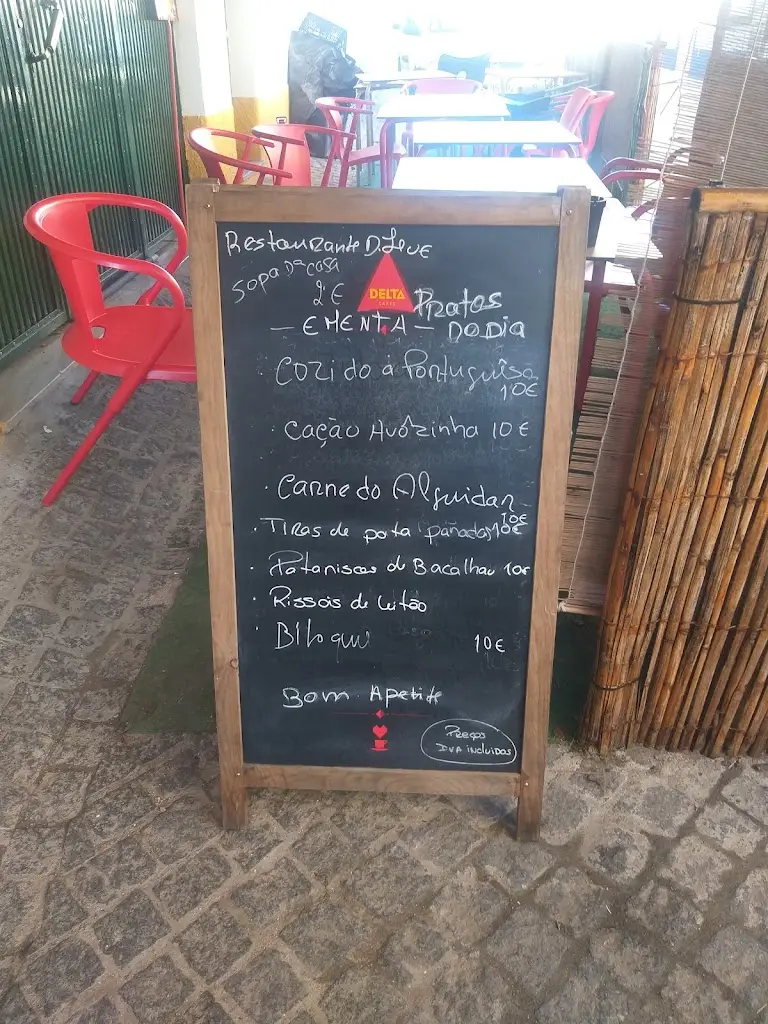 Restaurante D.Leve
Sopa Da Casa
2€
DELTA
CAFÉS
Pratos
— EMENTA — DO DIA
Cozido á Portuguisa
10€
Cação Avózinha 10€
Carne do Alguidar
10€
Tiras de pota panadas 10€
Pataniscas de Bacalhau 10€
Rissois de Leitão
Bitoque 10€
Bom Apetite
Preços
IVA incluidos